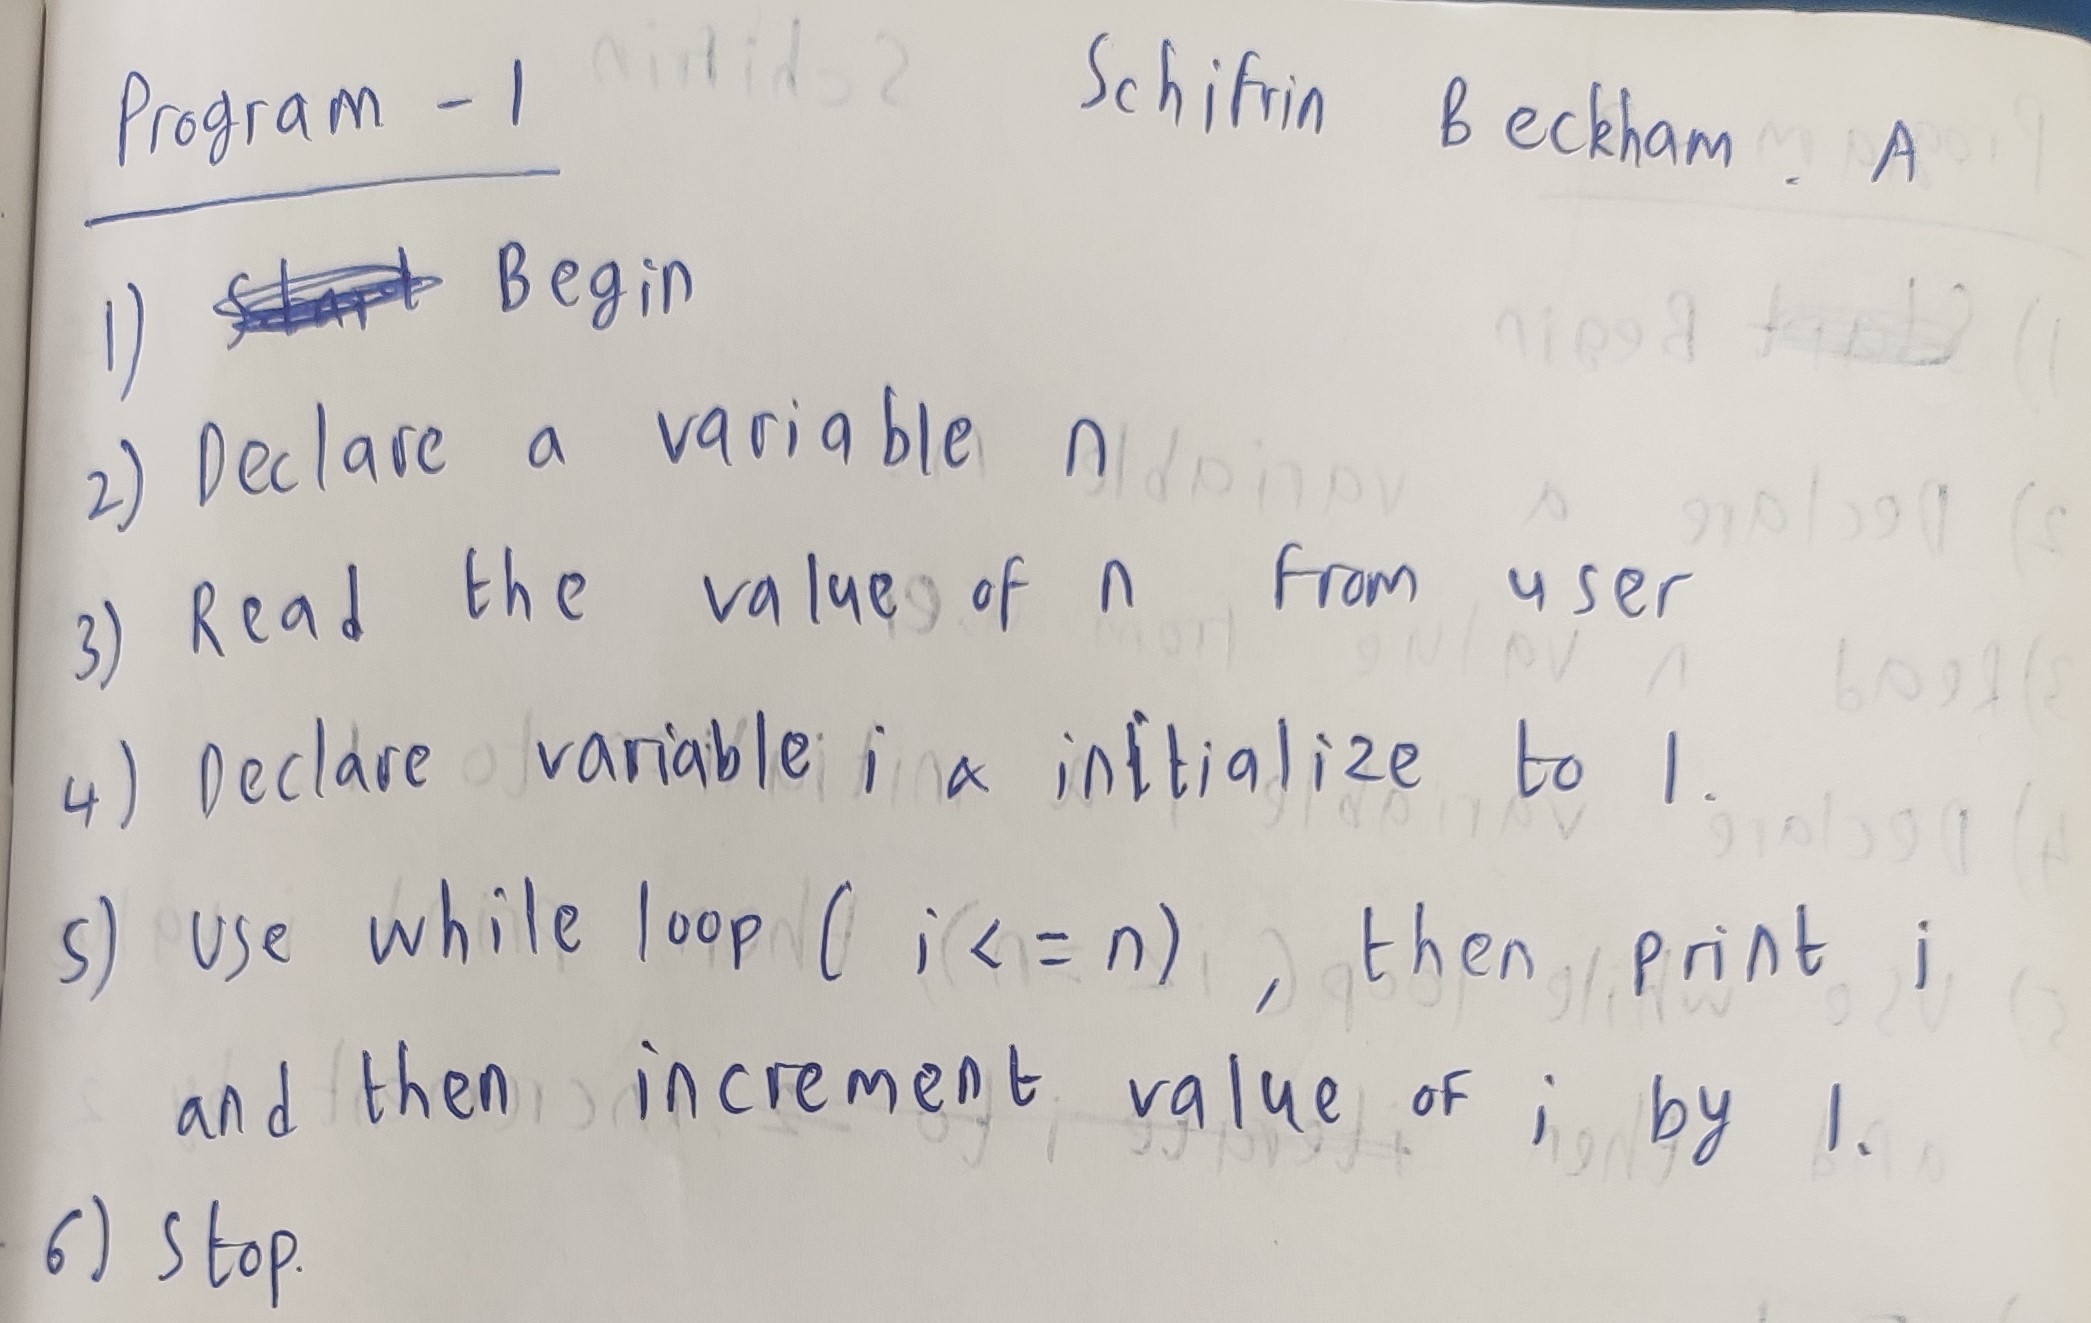 Program - 1 Schifrin Beckham . A
1) Start Begin
2) Declare a variable n
3) Read the value of n from user
4) Declare variable i & initialize to 1.
5) Use while loop ( i <= n) , then print i
and then increment value of i by 1.
6) Stop.